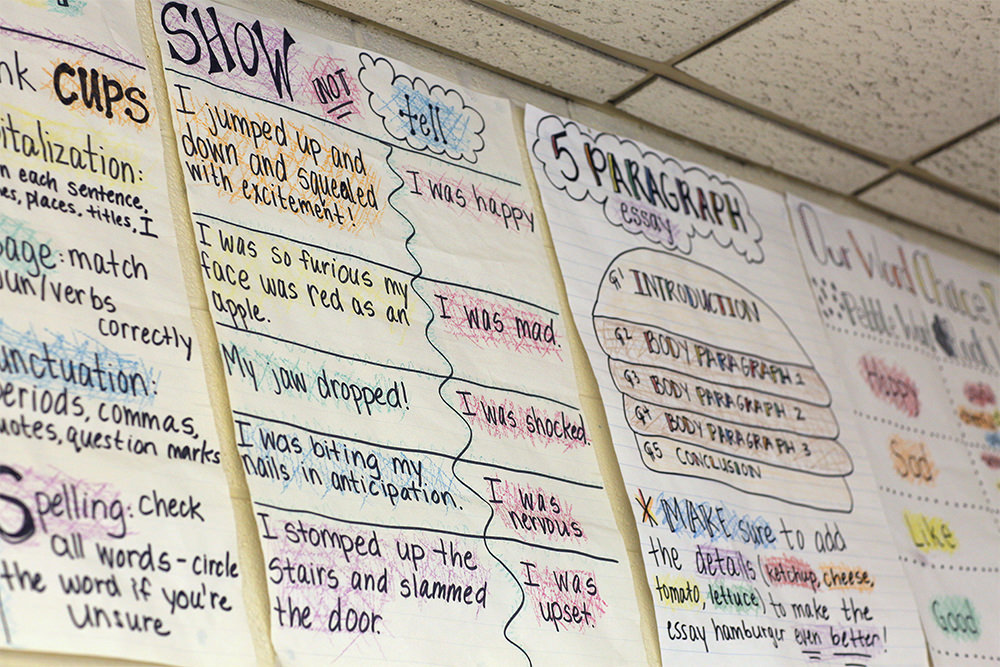 CUPS
each sentence,
places, titles, I
match
verbs
correctly
periods, commas,
question marks
Spelling: check
all words - circle
the word if you're
unsure
SHOW NOT tell
I jumped up and
down and squealed
with excitement!
I was happy
I was so furious my
face was red as an
apple.
I was mad.
My jaw dropped!
I was shocked.
I was biting my
nails in anticipation.
I was
nervous
I stomped up the
stairs and slammed
the door.
I was
upset.
5 PARAGRAPH
essay
G1 INTRODUCTION
G2 BODY PARAGRAPH 1
G3 BODY PARAGRAPH 2
G4 BODY PARAGRAPH 3
G5 CONCLUSION
* MAKE sure to add
the details (ketchup, cheese,
tomato, lettuce) to make the
essay hamburger even better!
Our Word Choice
Happy
Sad
Like
Good